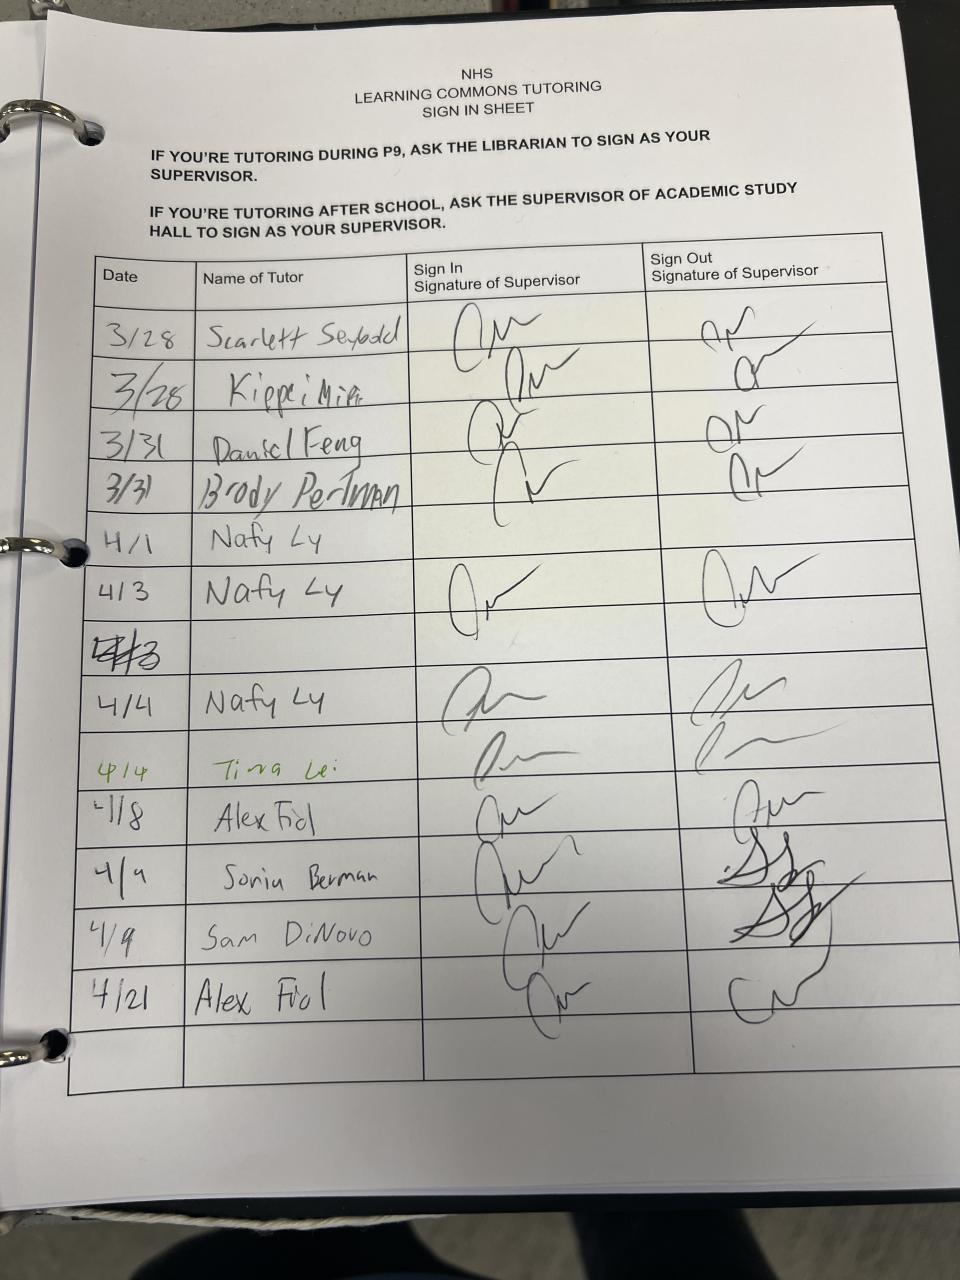 NHS
LEARNING COMMONS TUTORING
SIGN IN SHEET
IF YOU'RE TUTORING DURING P9, ASK THE LIBRARIAN TO SIGN AS YOUR
SUPERVISOR.
IF YOU'RE TUTORING AFTER SCHOOL, ASK THE SUPERVISOR OF ACADEMIC STUDY
HALL TO SIGN AS YOUR SUPERVISOR.
Date Name of Tutor Sign In Signature of Supervisor Sign Out Signature of Supervisor
3/28 Scarlett Seybold
3/28 Kippei
3/31 Daniel Feng
3/31 Brody Perlman
4/1 Nafy Ly
4/3 Nafy Ly
4/4 Nafy Ly
4/4 Tina Lei
4/8 Alex Fiol
4/9 Sonia Berman
4/9 Sam DiNovo
4/21 Alex Fiol